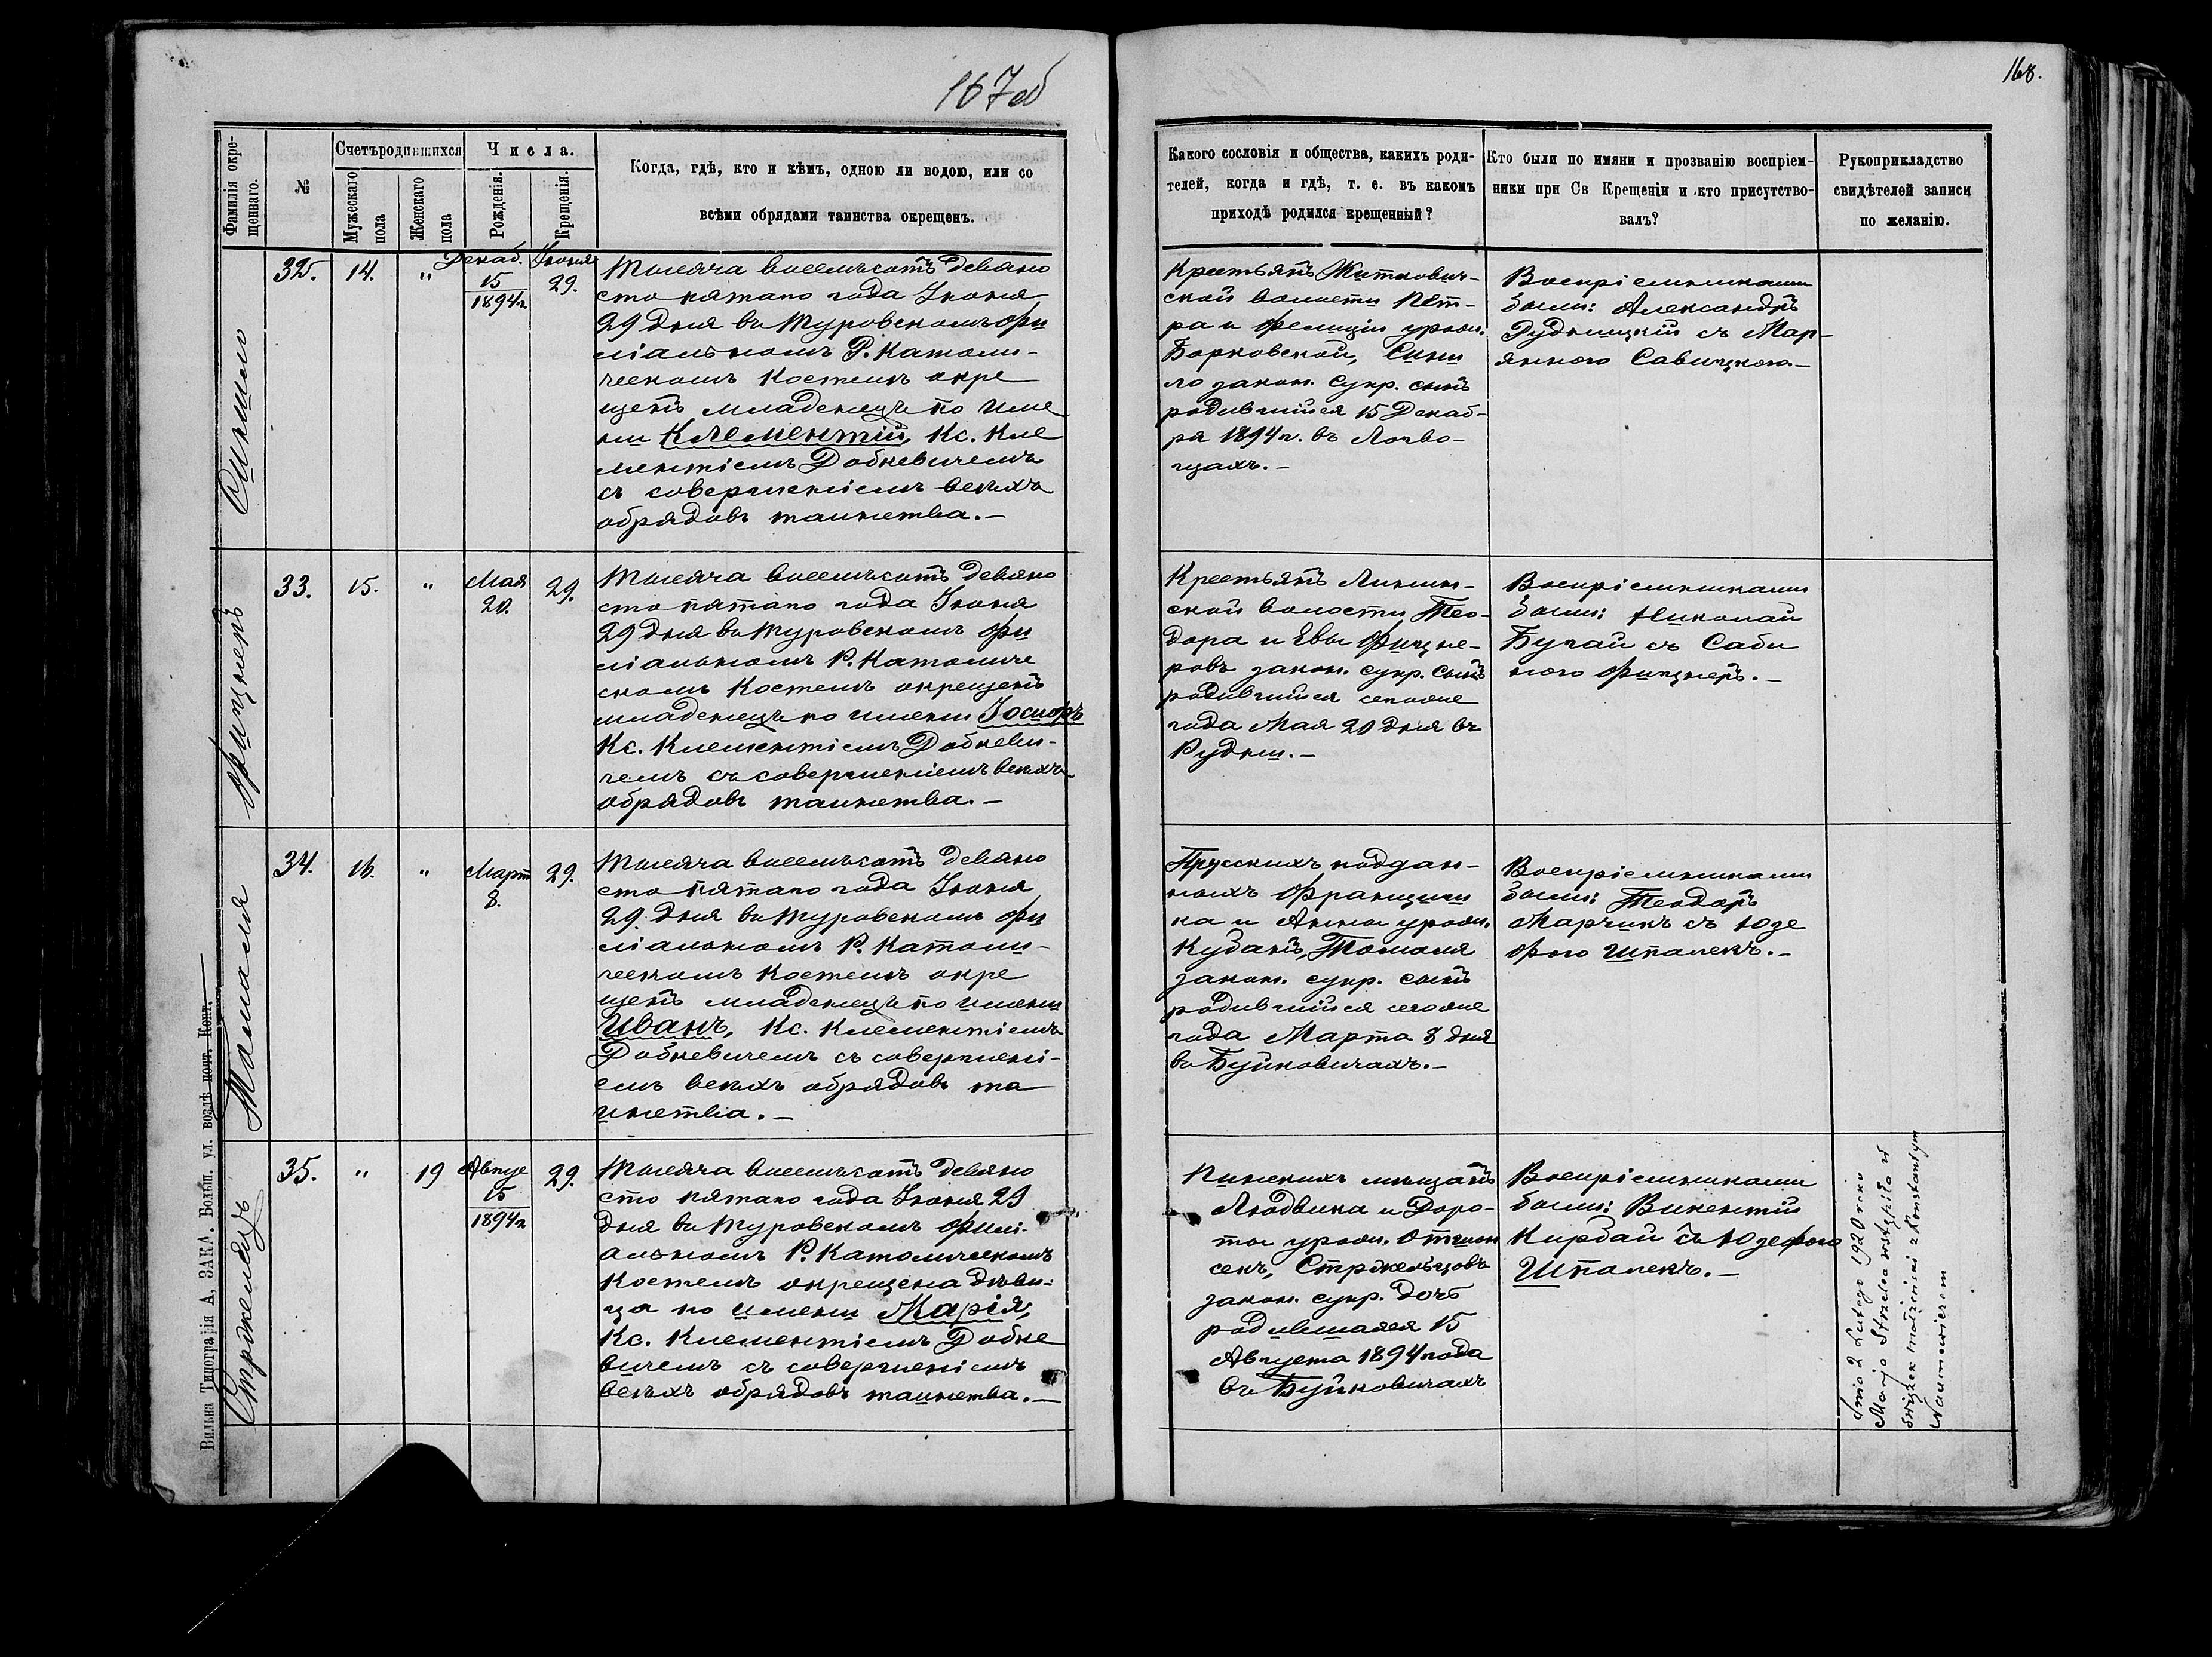 167об
168.
Фамилія окре-
щеннаго.
№
Счетъ родившихся
Мужескаго
пола
Женскаго
пола
Числа.
Рожденія.
Крещенія.
Когда, гдѣ, кто и кѣмъ, одною ли водою, или со
всѣми обрядами таинства окрещенъ.
Какого сословія и общества, какихъ роди-
телей, когда и гдѣ, т. е. въ какомъ
приходѣ родился крещенный?
Кто были по имяни и прозванію воспріем-
ники при Св Крещеніи и кто присутство-
валъ?
Рукоприкладство
свидѣтелей записи
по желанію.
Синило
32.
14.
"
Декаб.
15
1894г.
Іюня
29.
Тысяча восемьсотъ девяно
сто пятаго года Іюня
29 дня въ Туровскомъ фи
ліальномъ Р. Католи-
ческомъ Костелѣ окре
щенъ младенецъ по име
ни Клементій, Кс. Кле
ментіемъ Добкевичемъ
съ совершеніемъ всѣхъ
обрядовъ таинства.—
Крестьянъ Житкович-
ской волости Пет-
ра и Фелиціи урож.
Борковской, Сини
ло закон. супр. сынъ
родившійся 15 Декаб-
ря 1894 г. въ
Воспріемниками
были: Александръ
Рудницкій съ Мар-
янною Савицкою.—
Фицнеръ
33.
15.
"
Мая
20.
29.
Тысяча восемьсотъ девяно
сто пятаго года Іюня
29 дня въ Туровскомъ фи
ліальномъ Р. Католиче
скомъ Костелѣ окрещенъ
младенецъ по имени Іосифъ
Кс. Клементіемъ Добкеви-
чемъ съ совершеніемъ всѣхъ
обрядовъ таинства.—
Крестьянъ Ленин-
ской волости Тео-
дора и Евы Фицне-
ровъ закон. супр. сынъ
родившійся сегоже
года Мая 20 дня въ
Рудни.—
Воспріемниками
были: Николай
Бугай съ Саби
ною Фицнеръ.—
Томаля
34.
16.
"
Март
8.
29.
Тысяча восемьсотъ девяно
сто пятаго года Іюня
29 дня въ Туровскомъ фи
ліальномъ Р. Католи-
ческомъ Костелѣ окре
щенъ младенецъ по имени
Иванъ, Кс. Клементіемъ
Добкевичемъ съ совершені-
емъ всѣхъ обрядовъ та
инства.—
Прусскихъ поддан-
ныхъ Францишн
ка и Анны урож.
Кубанъ, Томаля
закон. супр. сынъ
родившійся сегоже
года Марта 8 дня
въ Буйковичахъ.—
Воспріемниками
были: Теодоръ
Марчикъ съ Юзе
фою Шпалекъ.—
Стржелецъ
35.
"
19
Авгус
15
1894г
29.
Тысяча восемьсотъ девяно
сто пятаго года Іюня 29
дня въ Туровскомъ филі-
альномъ Р. Католическомъ
Костелѣ окрещена дѣви-
ца по имени Марія,
Кс. Клементіемъ Добке
вичемъ съ совершеніемъ
всѣхъ обрядовъ таинства.—
Пинскихъ мѣщанъ
Людвика и Доро-
ты урож.
Стржельцовъ
закон. супр. дочь
родившаяся 15
Августа 1894 года
въ Буйковичахъ
Воспріемниками
были: Викентій
Кирдай съ Юзефою
Шпалекъ.—
Dnia 2 Lutego 1920 roku
Marja Strzelec wstąpiła w
związek małżeński z Konstantym
Naumowiczem
Вильна Типографія А, ЗАКА. Больш. ул. возлѣ почт. Конт.